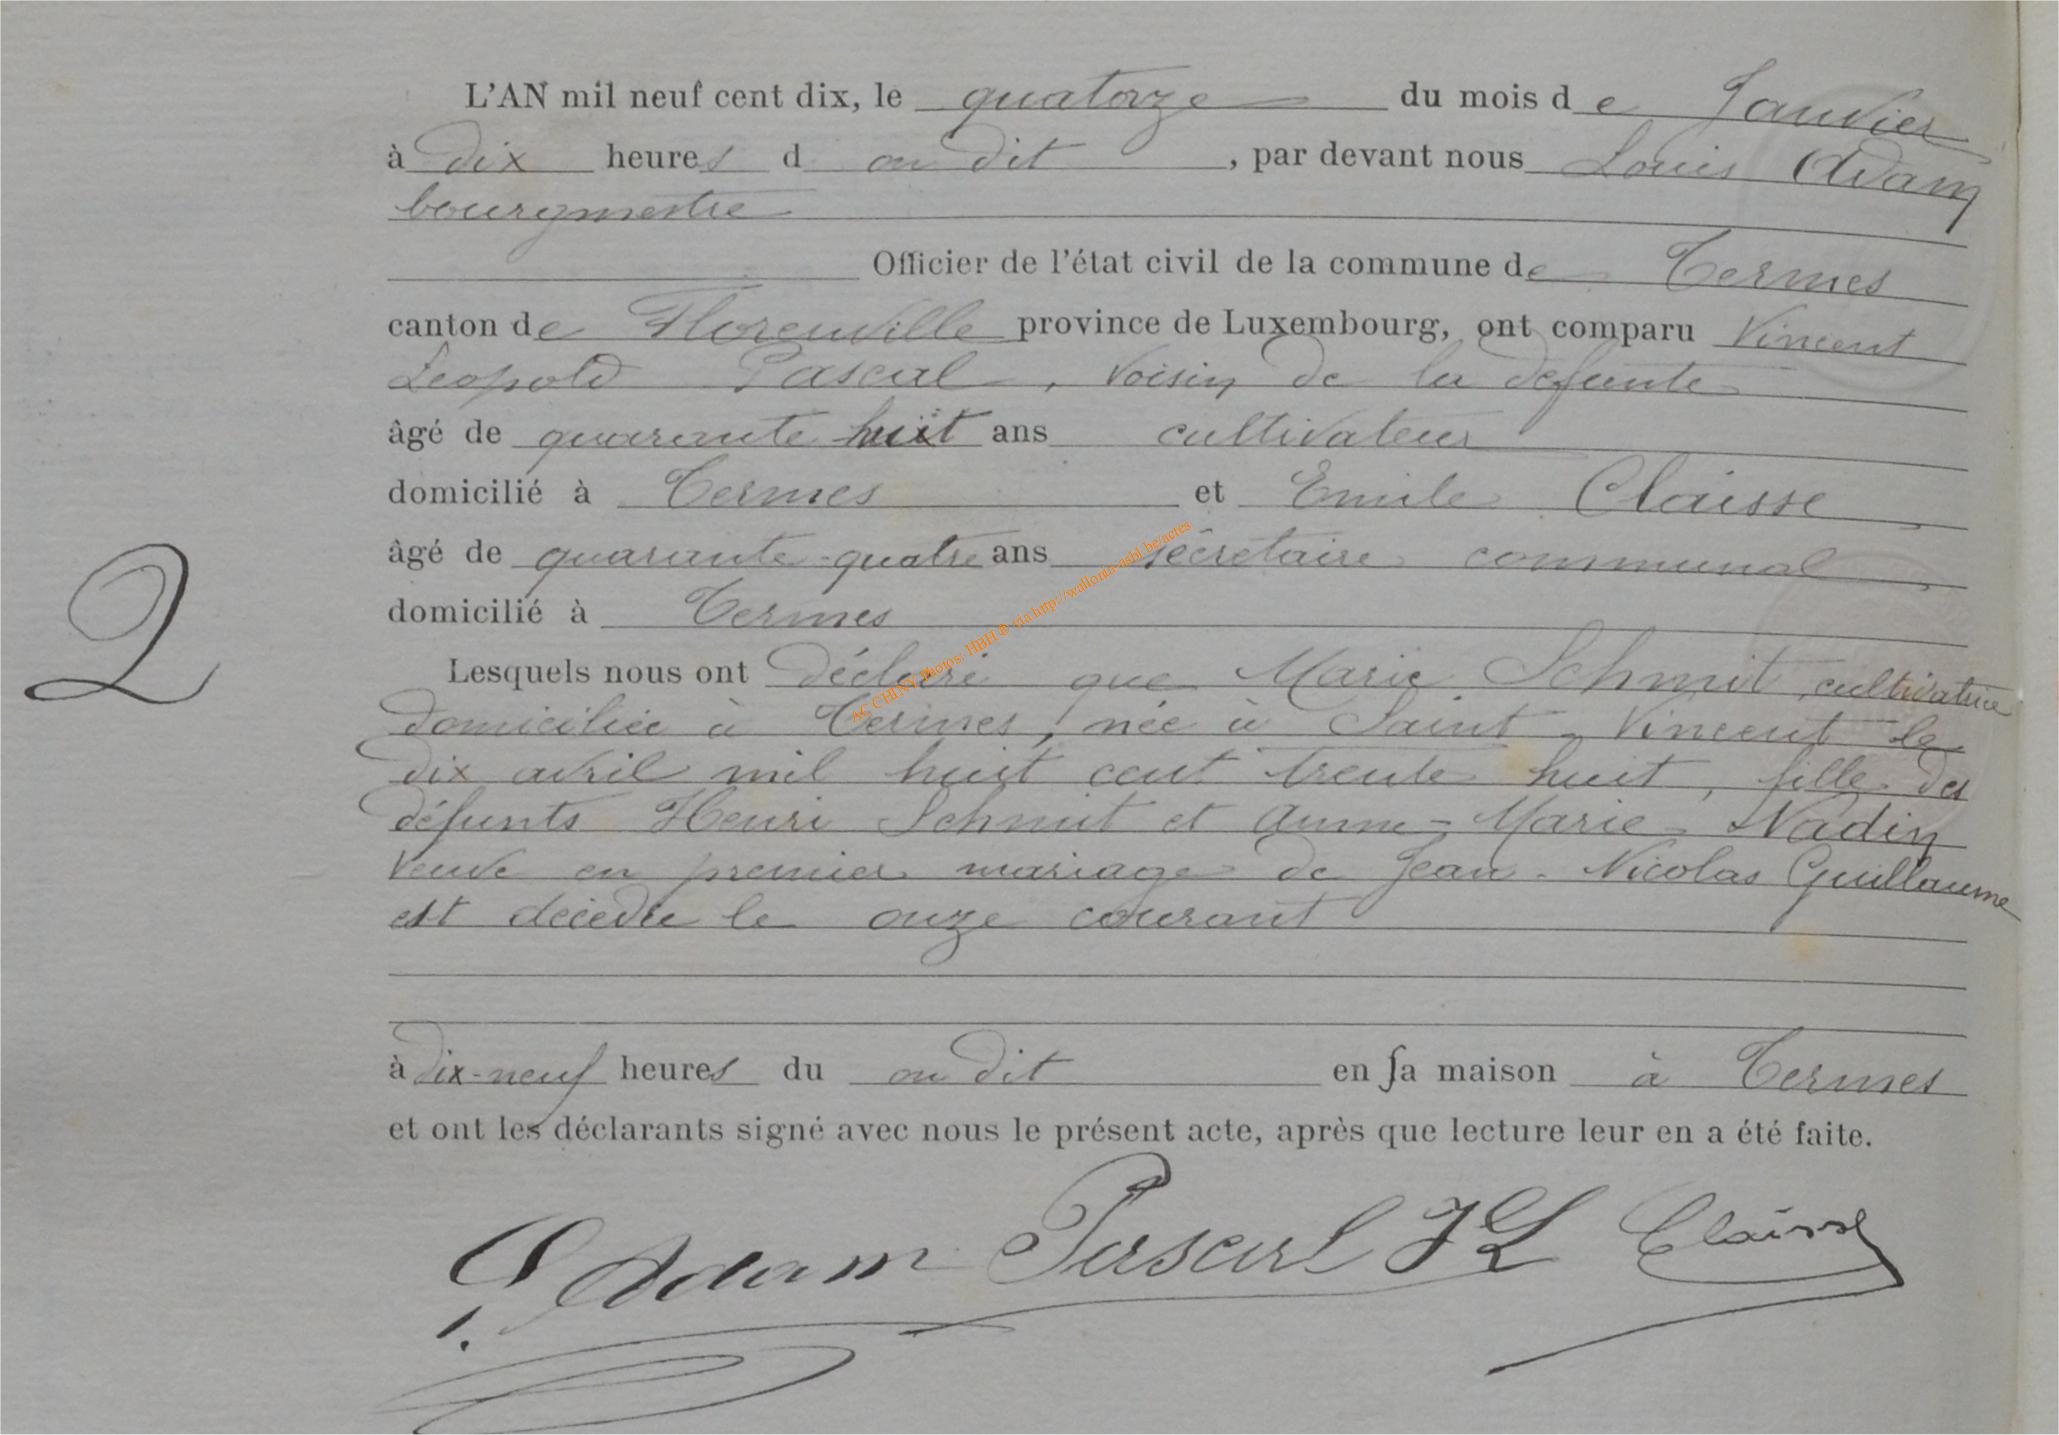 L'AN mil neuf cent dix, le quatorze du mois de Janvier
à dix heures d ou dit, par devant nous Louis Adam
bourgmestre
Officier de l'état civil de la commune de Termes
canton de Florenville province de Luxembourg, ont comparu Vincent
Leopold Pascal, voisin de la défunte
âgé de quarante huit ans cultivateur
domicilié à Termes et Emile Claisse
âgé de quarante-quatre ans secrétaire communal
domicilié à Termes
2
Lesquels nous ont déclaré que Marie Schmit, cultivatrice
domiciliée à Termes, née à Saint-Vincent le
dix avril mil huit cent trente huit, fille des
défunts Henri Schmit et Anne-Marie Nadin
veuve en premier mariage de Jean-Nicolas Guillaume
est décédée le onze courant
à dix-neuf heures du ou dit en sa maison à Termes
et ont les déclarants signé avec nous le présent acte, après que lecture leur en a été faite.
L. Adam Pascal JL Claisse
AC CHINY Photos: HBH © via http://wallonia-asbl.be/actes